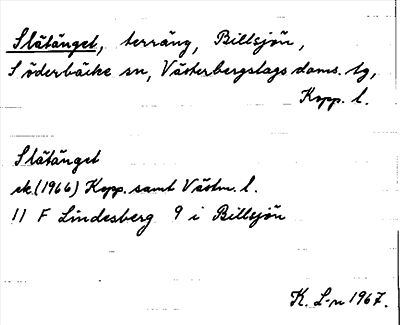 Slätänget, terräng, Billsjön,
Söderbäcke sn, Västerbergslags doms. tg,
Kopp. l.
Slätänget
ek. (1966) Kopp. samt Västm. l.
11 F Lindesberg 9 i Billsjön
K. L-n 1967.